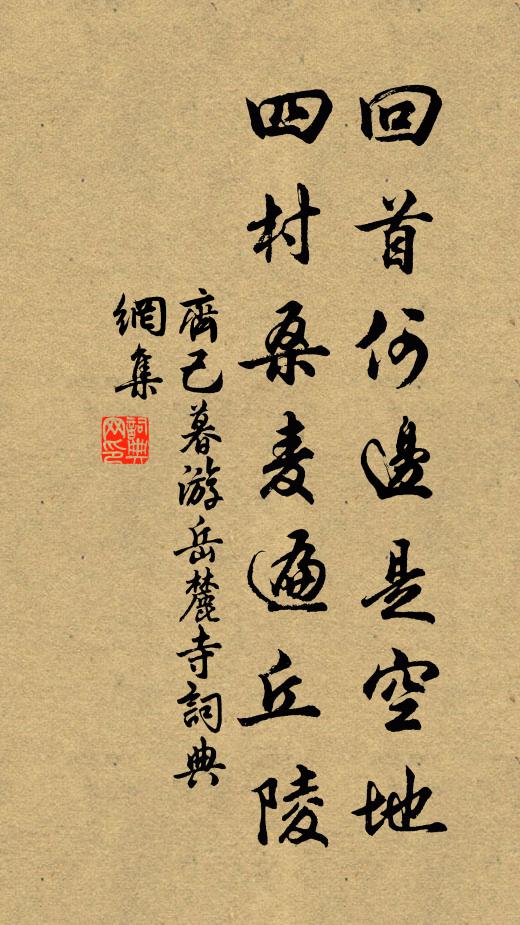 回首何邊是空地
四村桑麦遍丘陵
齊己暮游岳麓寺詞典
網集
詞典
网印